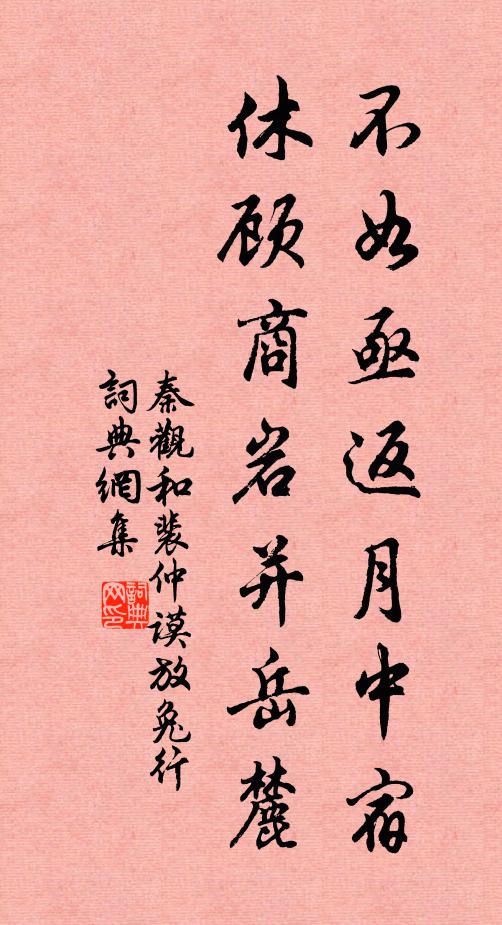 不如亟返月中宿
休顾商岩并岳麓
秦觀和裴仲謨放兔行
詞典網集
詞典
网印